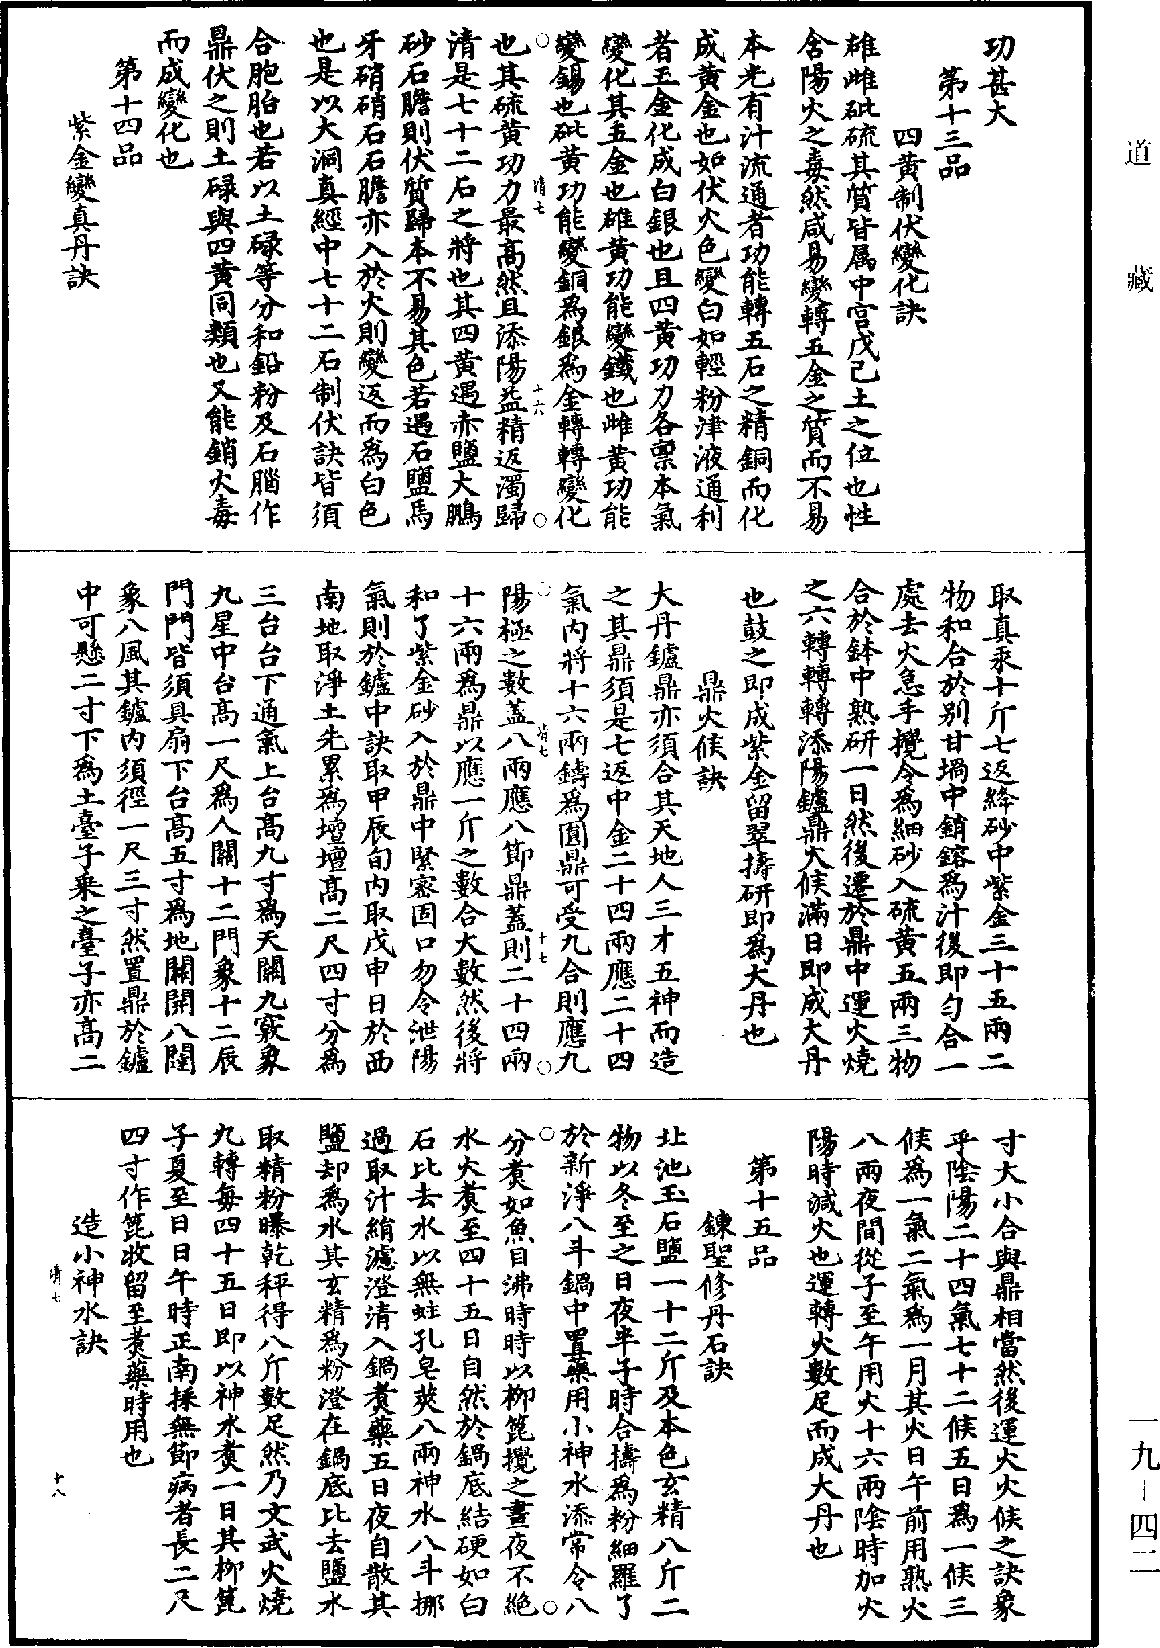 道藏
功甚大
第十三品
四黄制伏變化訣
雄雌砒硫其質皆屬中宫戊己土之位也性
含陽火之毒然咸易變轉五金之質而不易
本光有汁流通者功能轉五石之精銅而化
成黄金也如伏火色變白如輕粉津液通利
者王金化成白銀也且四黄功力各禀本氣
變化其五金也雄黄功能變鐵也雌黄功能
變錫也砒黄功能變銅爲銀爲金轉轉變化
清七 十六
也其硫黄功力最高然且添陽益精返濁歸
清是七十二石之將也其四黄遇赤鹽大鵬
砂石膽則伏質歸本不易其色若遇石鹽馬
牙硝硝石石膽亦入於火則變返而爲白色
也是以大洞真經中七十二石制伏訣皆須
合胞胎也若以土碌等分和鉛粉及石腦作
鼎伏之則土碌與四黄同類也又能銷火毒
而成變化也
第十四品
紫金變真丹訣
取真汞十斤七返絳砂中紫金三十五兩二
物和合於别甘堝中銷鎔爲汁後即勻合一
處去火急手攪令爲細砂入硫黄五兩三物
合於鉢中熟研一日然後遷於鼎中運火燒
之六轉轉轉添陽鑪鼎火候滿日即成大丹
也鼓之即成紫金留翠擣研即爲大丹也
鼎火候訣
大丹鑪鼎亦須合其天地人三才五神而造
之其鼎須是七返中金二十四兩應二十四
氣内將十六兩鑄爲圓鼎可受九合則應九
清七 十七
陽極之數蓋八兩應八節鼎蓋則二十四兩
十六兩爲鼎以應一斤之數合大數然後將
和了紫金砂入於鼎中緊密固口勿令泄陽
氣則於鑪中訣取甲辰旬内取戊申日於西
南地取淨土先累爲壇壇高二尺四寸分爲
三台台下通氣上台高九寸爲天關九竅象
九星中台高一尺爲人關十二門象十二辰
門門皆須具扇下台高五寸爲地關開八闥
象八風其鑪内須徑一尺三寸然置鼎於鑪
中可懸二寸下爲土臺子乘之臺子亦高二
寸大小合與鼎相當然後運火火候之訣象
乎陰陽二十四氣七十二候五日爲一候三
候爲一氣二氣爲一月其火日午前用熟火
八兩夜間從子至午用火十六兩陰時加火
陽時減火也運轉火數足而成大丹也
第十五品
鍊聖修丹石訣
北池玉石鹽一十二斤及本色玄精八斤二
物以冬至之日夜半子時合擣爲粉細羅了
於新淨八斗鍋中置藥用小神水添常令八
分煑如魚目沸時時以柳箆攪之晝夜不絶
水火煑至四十五日自然於鍋底結硬如白
石比去水以無蛀孔皂莢八兩神水八斗挪
過取汁綃濾澄清入鍋煑藥五日夜自散其
鹽却爲水其玄精爲粉澄在鍋底比去鹽水
取精粉曝乾秤得八斤數足然乃文武火燒
九轉每四十五日即以神水煑一日其柳箆
子夏至日日午時正南揉無節病者長二尺
四寸作箆收留至煑藥時用也
造小神水訣
清七 十八
一九－四二